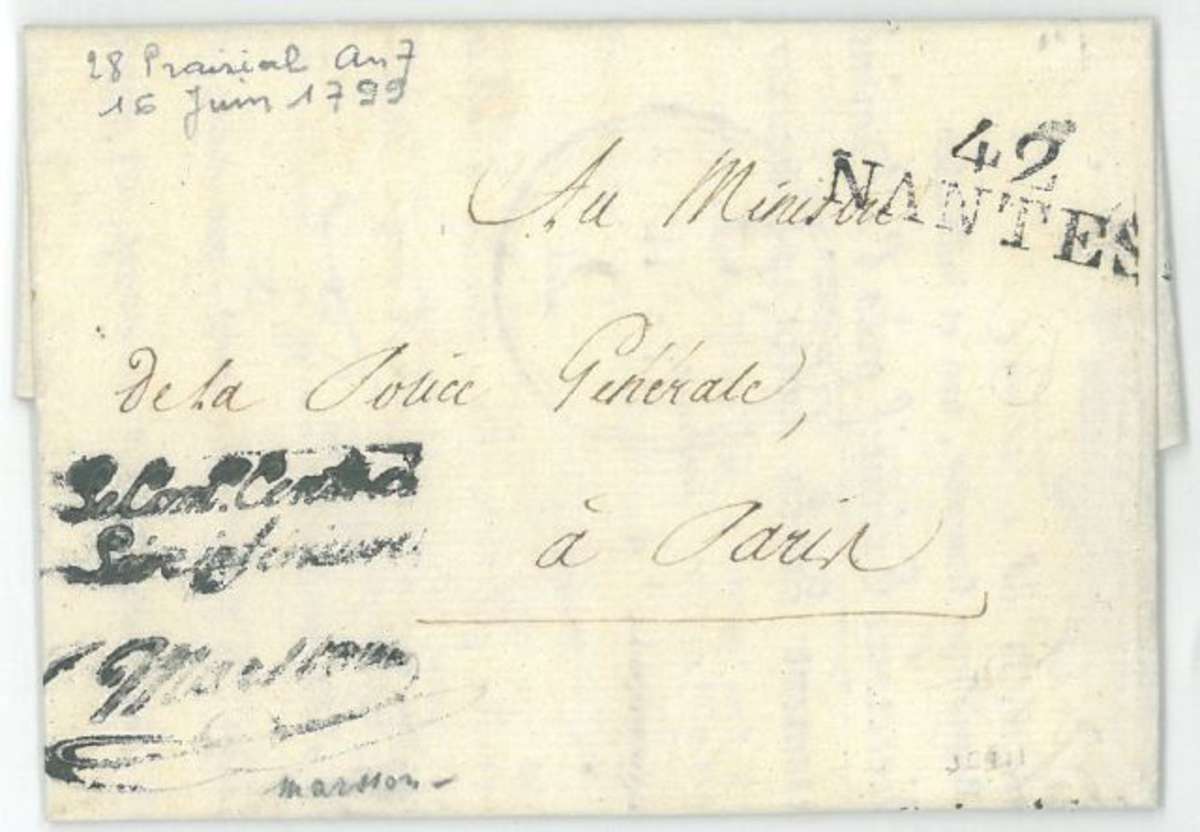 28 Prairial An 7
16 Juin 1799
42
NANTES
Au Ministre
de la Police Générale,
Le Com.re Central
Loire inférieure
à Paris
Marsson
marsson